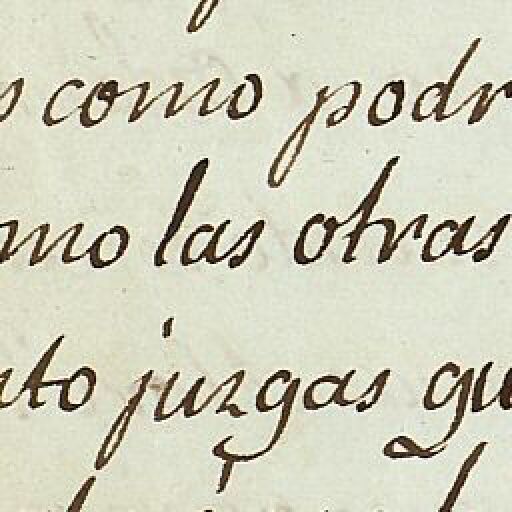 s como podr
mo las otras
nto juzgas qu